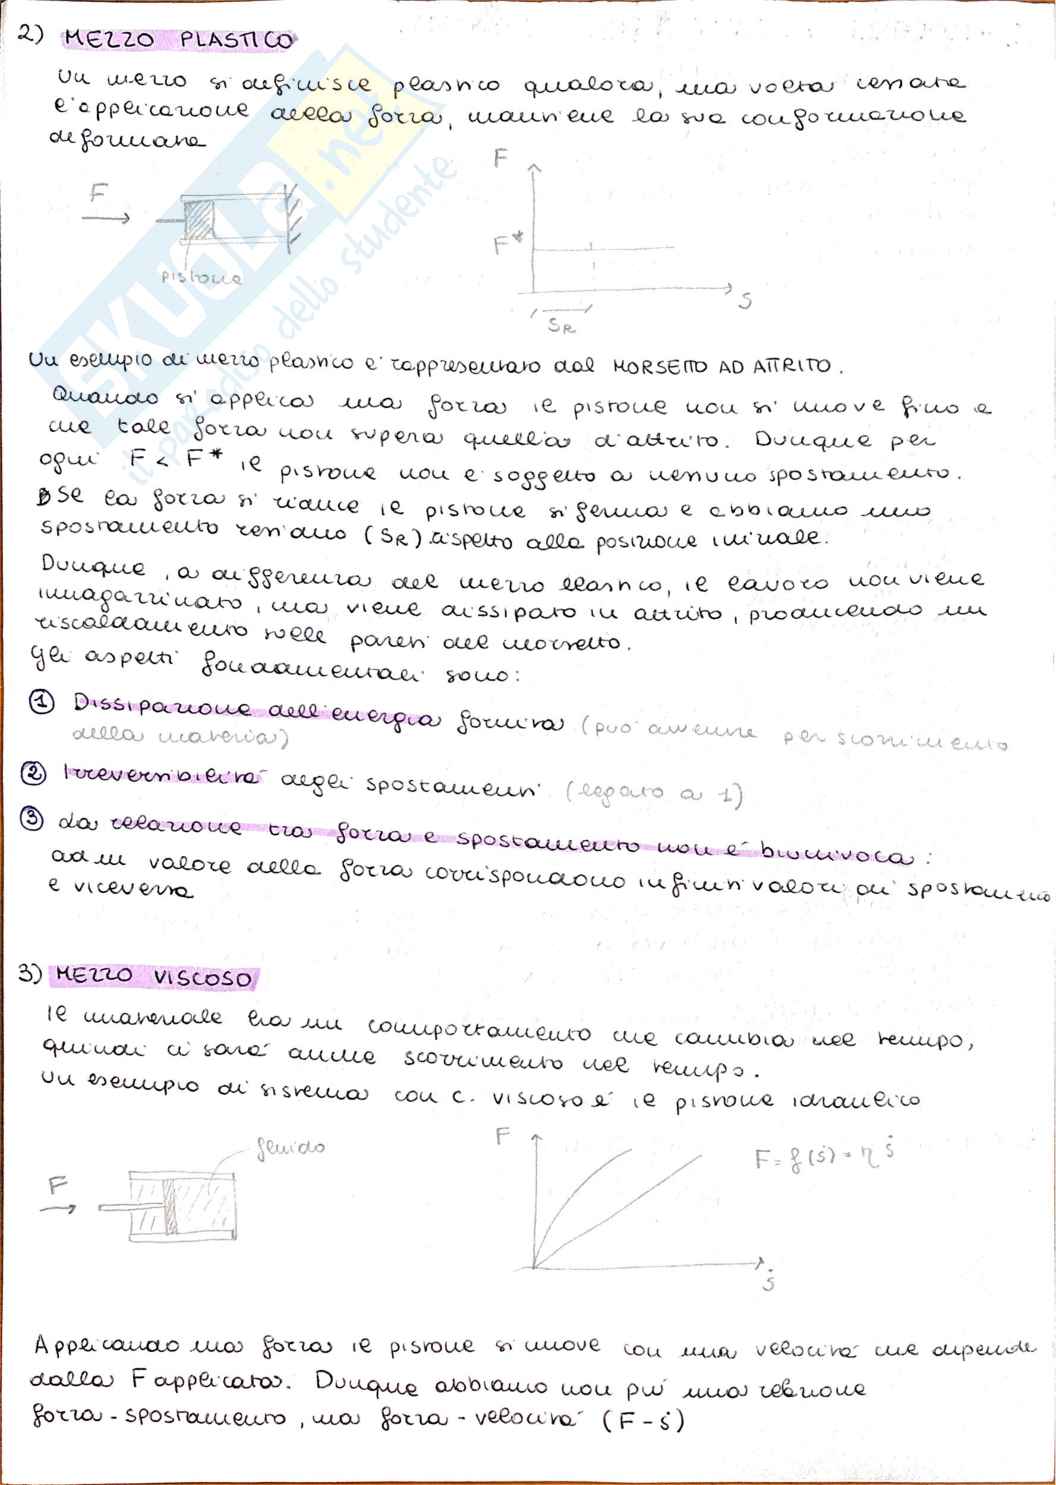 2) MEZZO PLASTICO
Un mezzo si definisce plastico qualora, una volta cessata
l'applicazione della forza, mantiene la sua conformazione
deformata
F
pistone
F
F*
S
SR
Un esempio di mezzo plastico è rappresentato dal MORSETTO AD ATTRITO.
Quando si applica una forza il pistone non si muove fino a
che tale forza non supera quella d'attrito. Dunque per
ogni F < F* il pistone non è soggetto a nessuno spostamento.
Se la forza si riduce il pistone si ferma e abbiamo uno
spostamento residuo (SR) rispetto alla posizione iniziale.
Dunque, a differenza del mezzo elastico, il lavoro non viene
immagazzinato, ma viene dissipato in attrito, producendo un
riscaldamento sulle pareti del morsetto.
Gli aspetti fondamentali sono:
① Dissipazione dell'energia fornita (può avvenire per scorrimento
della materia)
② Irreversibilità degli spostamenti (legato a 1)
③ La relazione tra forza e spostamento non è biunivoca:
ad un valore della forza corrispondono infiniti valori di spostamento
e viceversa
3) MEZZO VISCOSO
Il materiale ha un comportamento che cambia nel tempo,
quindi ci sarà anche scorrimento nel tempo.
Un esempio di sistema con c. viscoso è il pistone idraulico
fluido
F
F
F = f(ṡ) = η ṡ
ṡ
Applicando una forza il pistone si muove con una velocità che dipende
dalla F applicata. Dunque abbiamo non più una relazione
forza - spostamento, ma forza - velocità (F - ṡ)
SKUOLA.net
il paradiso dello studente